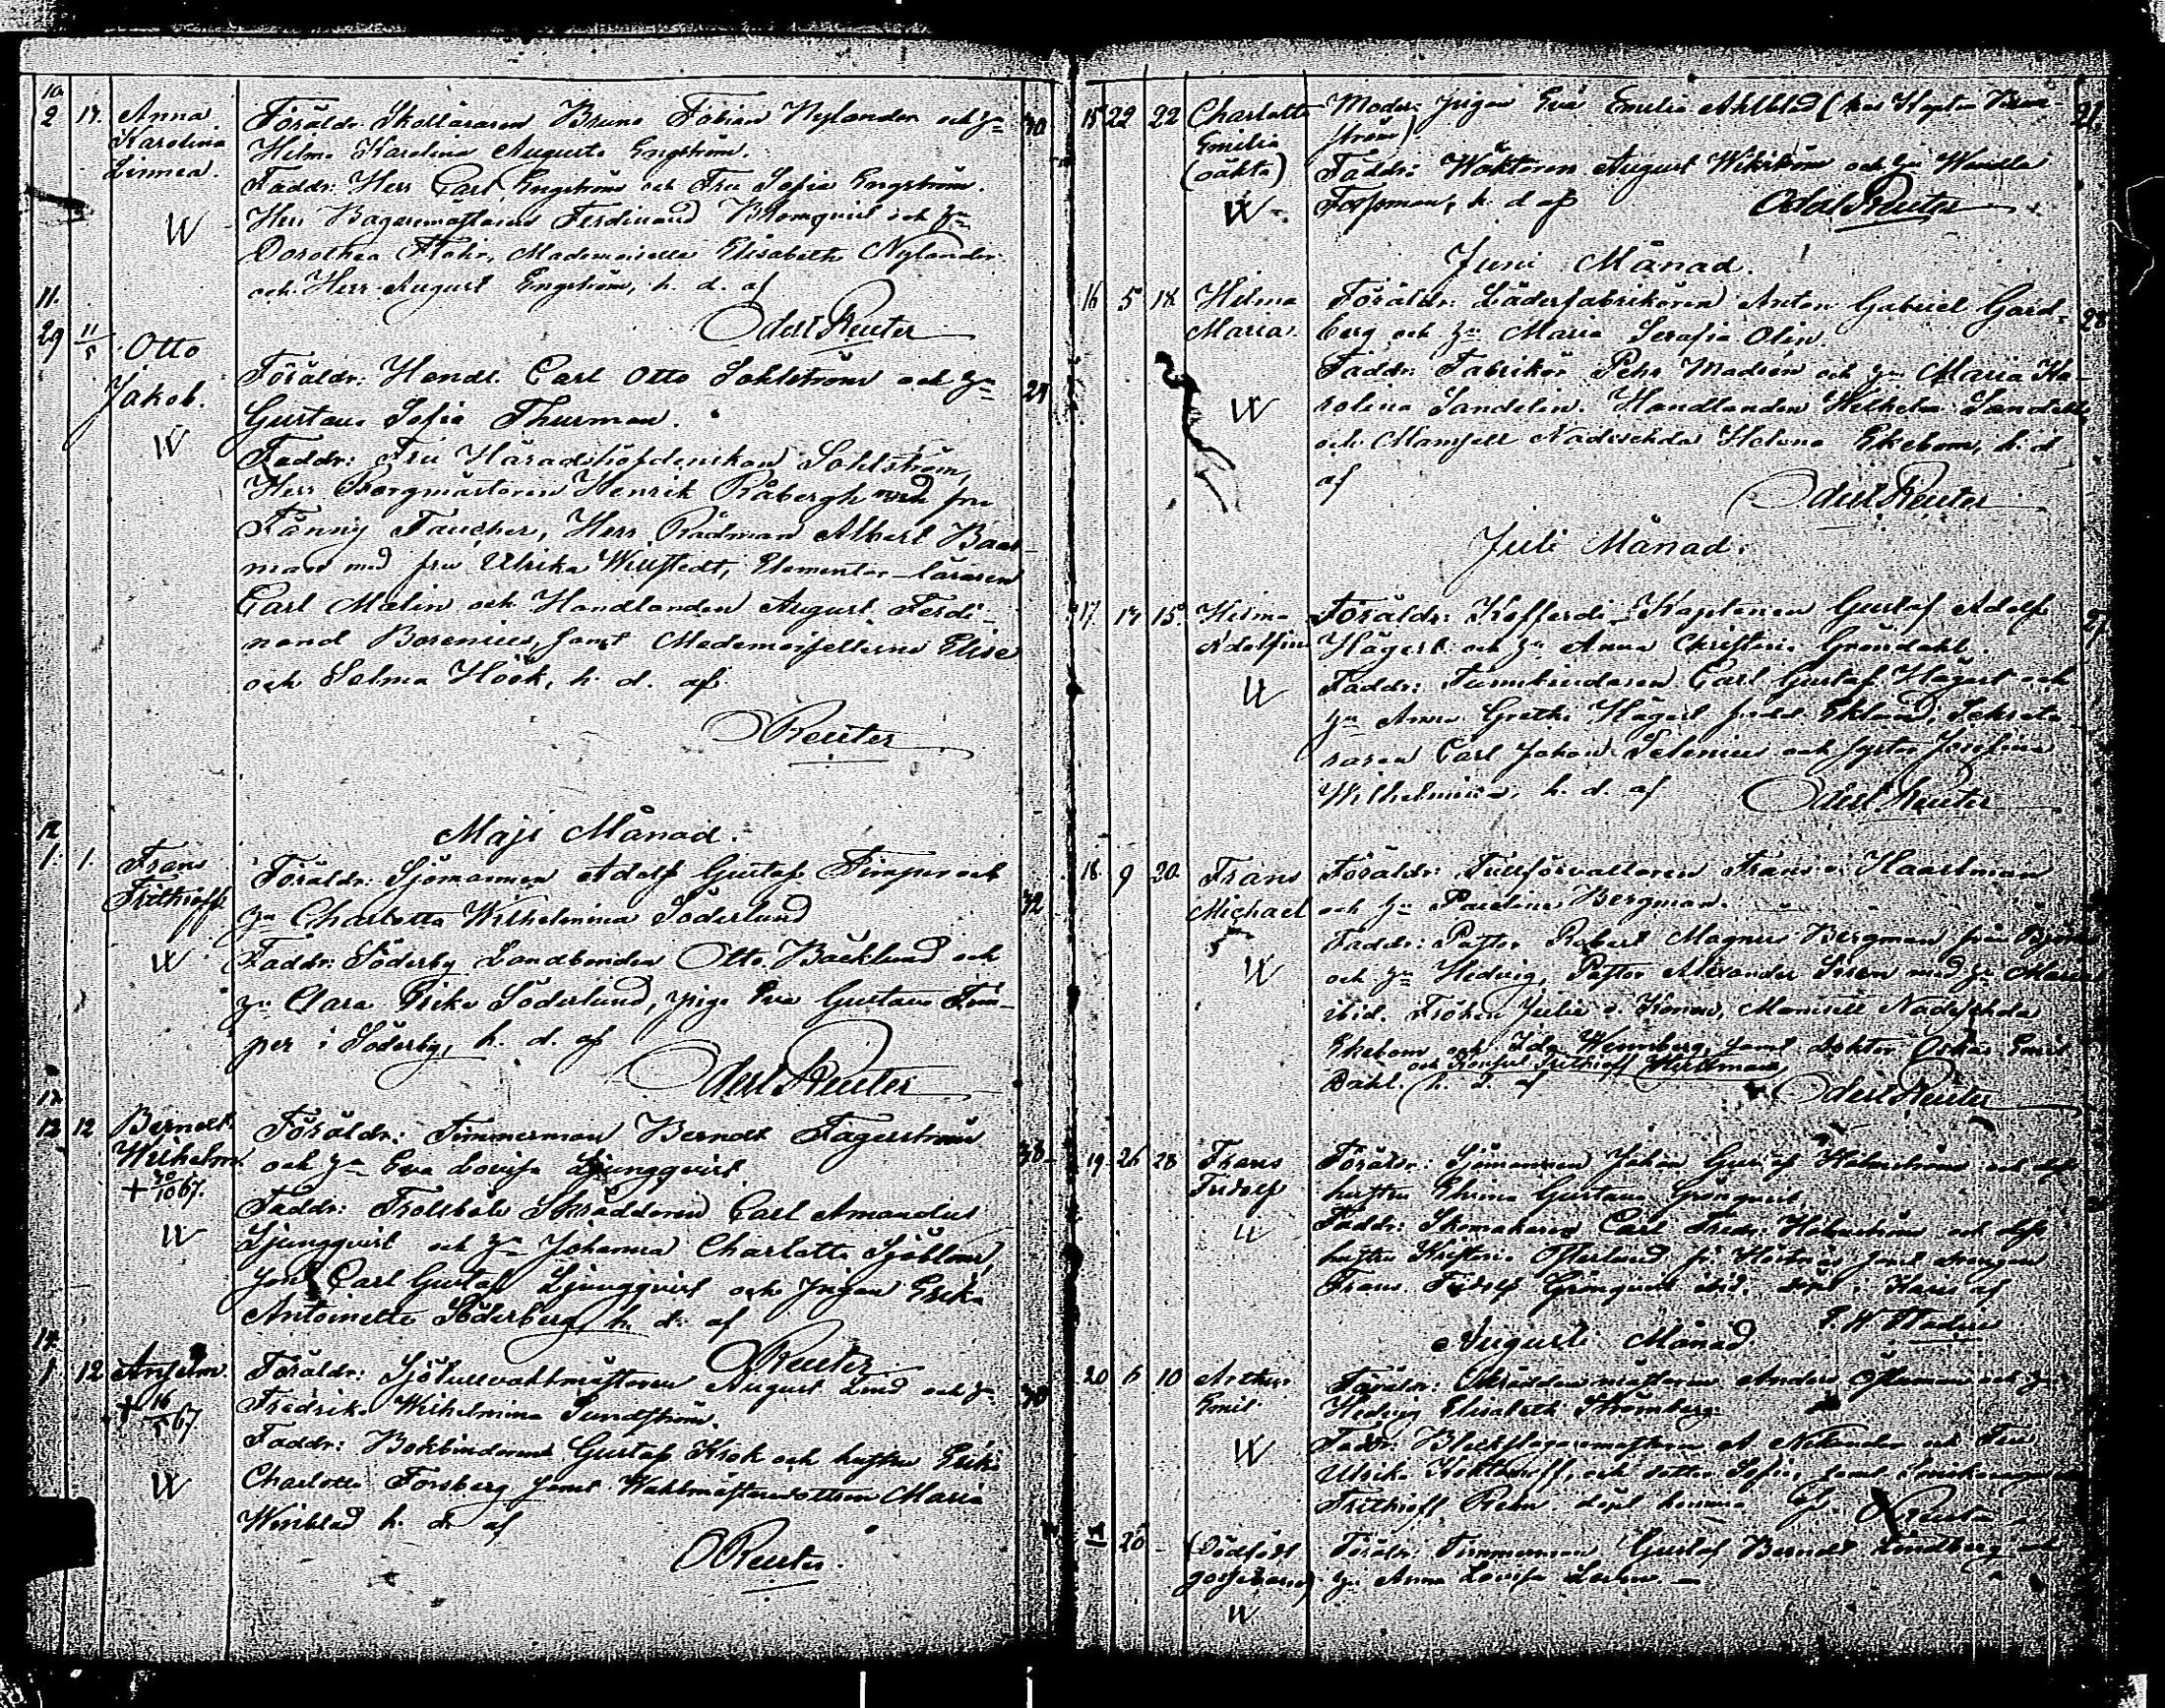 10.
2 14. Anna Föräldr. Skolläraren Bruno Fabian Nylander och h:u 30
Karolina Helma Karolina Augusta Engström.
Linnea. Faddr: Herr Carl Engström och Fru Sofia Engström.
W Herr Bagaremästaren Ferdinand Blomqvist och h:u
Dorothea Flohr, Mademoiselle Elisabeth Nylander
och Herr August Engström, h. d. af
Odert Reuter
11.
29 11/5 Otto
Jakob. Föräldr: Handl. Carl Otto Sohlström och h:u 24
Gustava Sofia Thurman.
W Faddr: Fru Häradshöfdinskan Sohlström,
Herr Borgmästaren Henrik Råbergh med fru
Fanny Faucher, Herr Rådman Albert
man med fru Ulrika Willstedt, Elementar-läraren
Carl Malin och Handlanden August Ferdi-
nand Borenius, samt Mademoisellerna Elise
och Selma Höök, h. d. af
OReuter
Maji Månad.
12.
1. 1. Frans Föräldr: Sjömannen Adolf Gustaf Timper och 32
Frithioff h:u Charlotta Wilhelmina Söderlund
W Faddr: Söderby Landbonden Otto Bäcklund och
h:u Clara Rika Söderlund, pig. Eva Gustava Tim-
per i Söderby, h. d. af
Odert Reuter
13.
12 12 Berndt Föräldr: Timmerman Berndt Fagerström 38
Wilhelm och h:u Eva Lovisa Ljungqvist
+ 30/10 67. Faddr: Trollböle Skräddaren Carl Amandus
W Ljungqvist och h:u Johanna Charlotta Sjöblom,
Carl Gustaf Ljungqvist och pigan Erika
Antoinette Söderberg, h. d. af
OReuter
14.
1 12 Anselm. Föräldr: Sjötullvaktmästaren August Lind och h:u 40
+ 16/5 67. Fredrika Wilhelmina Sundström.
Faddr: Bokbindaren Gustaf Krok och hustru Erika
W Charlotta Forsberg samt Waktmästaredottren Maria
Winblad h. d. af
OReuter.
15 22 22 Charlotta Moder: pigan Eva Emilia Ahlblad (hos Kapten 21.
Emilia ström)
(oäkta) Faddr: Waktaren August Wikström och h:u Wendla
W. Forsman, h. d. af Odert Reuter
Juni Månad.
16 5 14. Hilma Föräldr: Läderfabrikören Anton Gabriel Gard- 28
Maria. berg och h:u Maria Serafia Olin.
Faddr: Fabrikör Pehr Madsén och h:u Maria Ka-
W rolina Sandelin. Handlanden Wilhelm Sandell
och Mamsell Nadeschda Helena Ekebom, h. d
af
Odert Reuter
Juli Månad.
17. 14 15. Hilma Föräldr: Kofferdi-Kaptenen Gustaf Adolf 27
Adolfina Hägert och h:u Anna Christina Gröndahl.
W Faddr: Tunnbindaren Carl Gustaf Hägert och
h:u Anna Greta Hägert född Eklund, Sekrete-
raren Carl Johan Selenius och syster Josefina
Wilhelmina, h. d. af Odert Reuter
18. 9 20. Frans Föräldr: Tullförvaltaren Frans v. Haartman
Michael och h:u Paulina Bergman.
Faddr: Pastor Robert Magnus Bergman från
W och h:u Hedvig, Pastor Alexander med h:u Maria
ibid. Fröken Julia v. Konow, Mamsell Nadeschda
Ekebom och Ida Wennberg, samt doktor Oskar Emil
och Konsul Frithioff
Dahl. h. d. af Odert Reuter
19. 26 28 Frans Föräldr: Sjömannen Johan Gustaf Holmström och dess
Fridolf hustru Gustava Grönqvist
W Faddr: Skomakaren Carl Fredr. Holmström och dess
hustru Kristina Österlund samt drängen
Frans Fridolf Grönqvist ibid. döpt i Karis af
Augusti Månad
20 6 10 Arthur Föräldr: Skräddaremästaren Anders Öhman och h:u
Emil Hedvig Elisabeth Strömberg.
W Faddr: Bleckslagaremästaren A Nikander och Fru
Ulrika och dotter Sofia, samt
Frithioff Rehn. döpt hemma af OReuter
21 26 - (Dödfödt Föräldr: Timmerman Gustaf Berndt Lindberg och
gossebarn) h:u Anna Lovisa
W